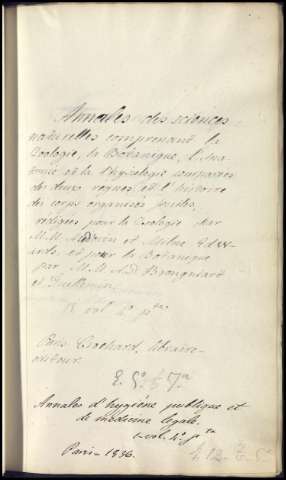 Annales des sciences
naturelles comprenant la
Zoologie, la Botanique, l'Ana-
tomie et la Physiologie comparées
des deux regnes et l'histoire
des corps organisés fosiles,
redigées pour la Zoologie par
M.M. Audouin et Milne Edw-
ards, et pour la Botanique
par M.M. Ad. Brongniart
et Guillemin
vol. 4º pta
Paris Crochard, libraire-
editeur.
Annales d'hygiène publique et
de médecine legale.
1 vol. 4º pta
Paris - 1836.